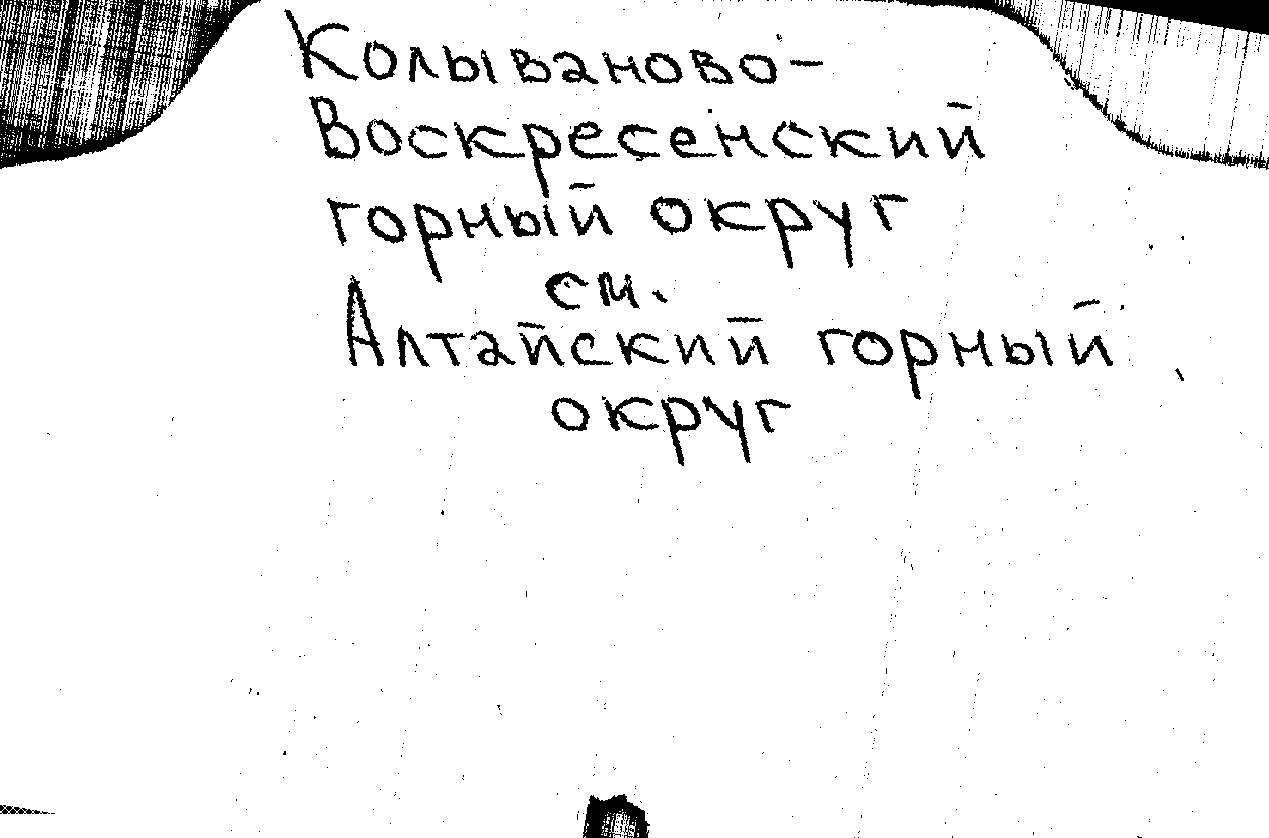 Колываново-
Воскресенский
горный округ
см.
Алтайский горный
округ